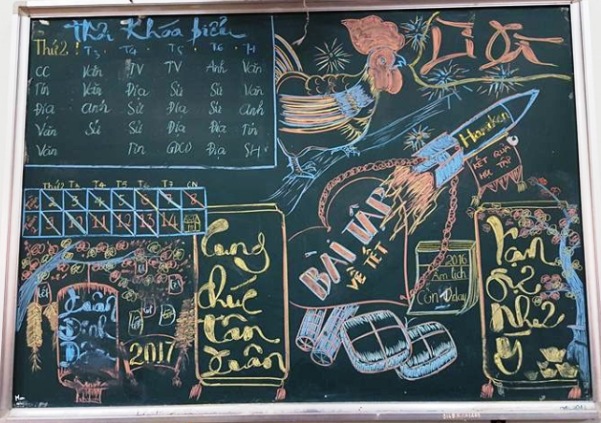 Thời Khóa biểu
Thứ 2 T3 T4 T5 T6 T7
CC Văn TV TV Anh Văn
Tin Văn Địa Sử Sử Văn
Địa anh Sử Địa Sử anh
Văn Sử Sử Địa Địa Tin
Văn Tin GDCD Địa SH
Haniken
TẾT
BÀI TẬP
VỀ TẾT
Thứ 2 T3 T4 T5 T6 T7 CN
2 3 4 5 6 7 8
9 10 11 12 13 14
Cung
chúc
tân
xuân
2016
Âm lịch
Còn 0 day
Vạn
sự
như
ý
Xuân
Đinh
2017